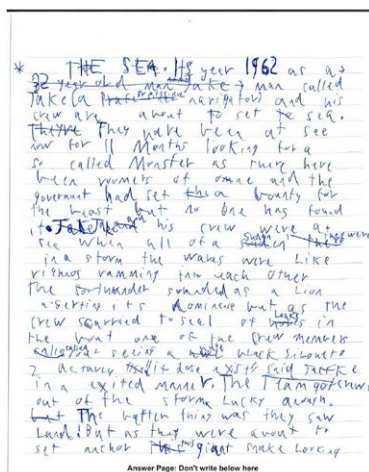 * THE SEA. Its year 1962 as a
32 year old man Jake man called
Jake (a professional navigator) and his
crew are about to set to sea.
They're They have been at see
now for 11 Months looking for a
so called Monster as there here
been roomers of omne and the
goverment had set this a bounty for
the beast but no one has found
it. Jake and his crew were at
see when all of a sudden they were
in a storm the waves were like
rihnos ramming into each other
the sounded as a Lion
aserting its dominance but as the
crew scurried to seal of leaks in
the boat one of the crew members
calls out seeing a black Silouete
actually it dose exist said Jake
in a exited manner. The Team got
out of the storm Lucky
but The thing was they saw
Land! But as they were about to
set anchor This giant snake Looking
Answer Page: Don't write below here